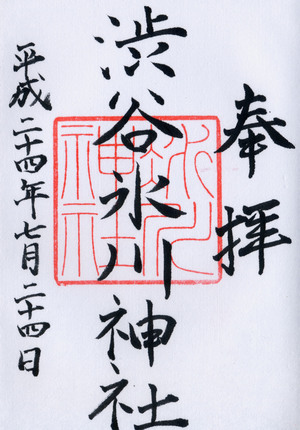 奉拝
渋谷氷川神社
平成二十四年七月二十四日